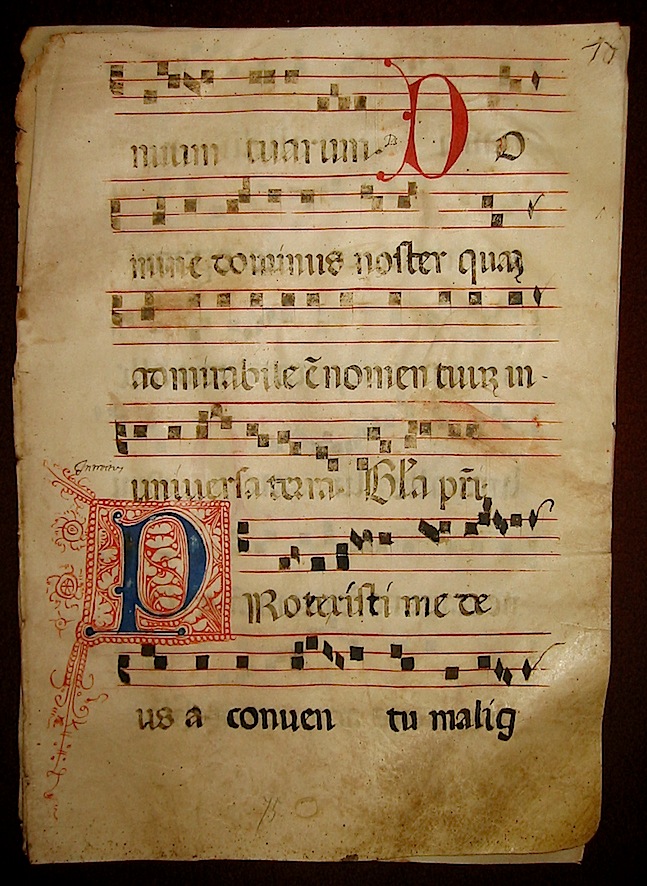 nuum tuarum. D O
mine dominus noster quaꝫ
admirabile ē nomen tuuꝫ in
uniuersa terra. Gl̄a pr̄i.
Introitus
PRotexisti me de
us a conuen tu malig
75